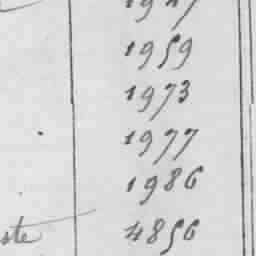 1959
1973
1977
1986
ste 4856